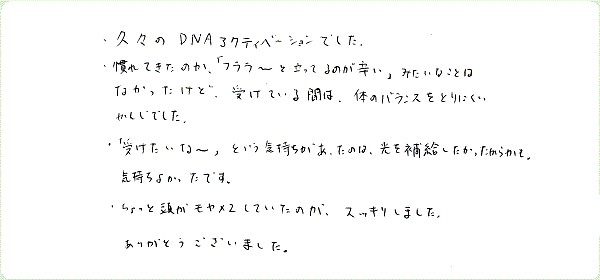 ・久々のDNAアクティベーションでした。
・慣れてきたのか、「フララ〜と立ってるのが辛い」みたいなことは
なかったけど、受けている間は、体のバランスをとりにくい
かんじでした。
・「受けたいな〜」という気持ちがあったのは、光を補給したかったからかも。
気持ちよかったです。
・ちょっと頭がモヤメクしていたのが、スッキリしました。
ありがとうございました。